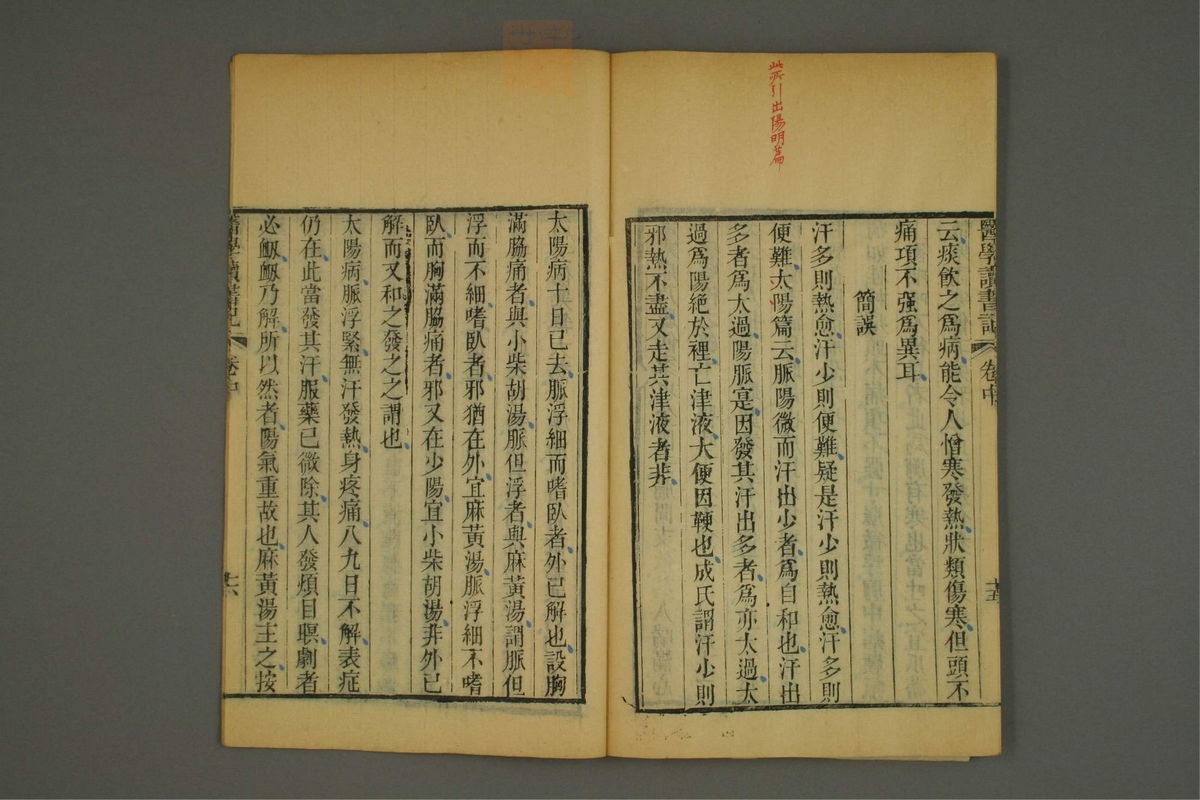 此所引出陽明篇
醫學讀書記
卷中
十五
云痰飲之爲病能令人憎寒發熱狀類傷寒但頭不
痛項不强爲異耳
簡誤
汗多則熱愈汗少則便難疑是汗少則熱愈汗多則
便難太陽篇云脈陽微而汗出少者爲自和也汗出
多者爲太過陽脈寔因發其汗出多者爲亦太過太
過爲陽絶於裡亡津液大便因鞕也成氏謂汗少則
邪熱不盡又走其津液者非
太陽病十日已去脈浮細而嗜臥者外已解也設胸
滿脇痛者與小柴胡湯脈但浮者與麻黃湯謂脈但
浮而不細嗜臥者邪猶在外宜麻黃湯脈浮細不嗜
臥而胸滿脇痛者邪又在少陽宜小柴胡湯非外已
解而又和之發之之謂也
太陽病脈浮緊無汗發熱身疼痛八九日不解表症
仍在此當發其汗服藥已微除其人發煩目暝劇者
必衂衂乃解所以然者陽氣重故也麻黃湯主之按
醫學讀書記
卷中
十六